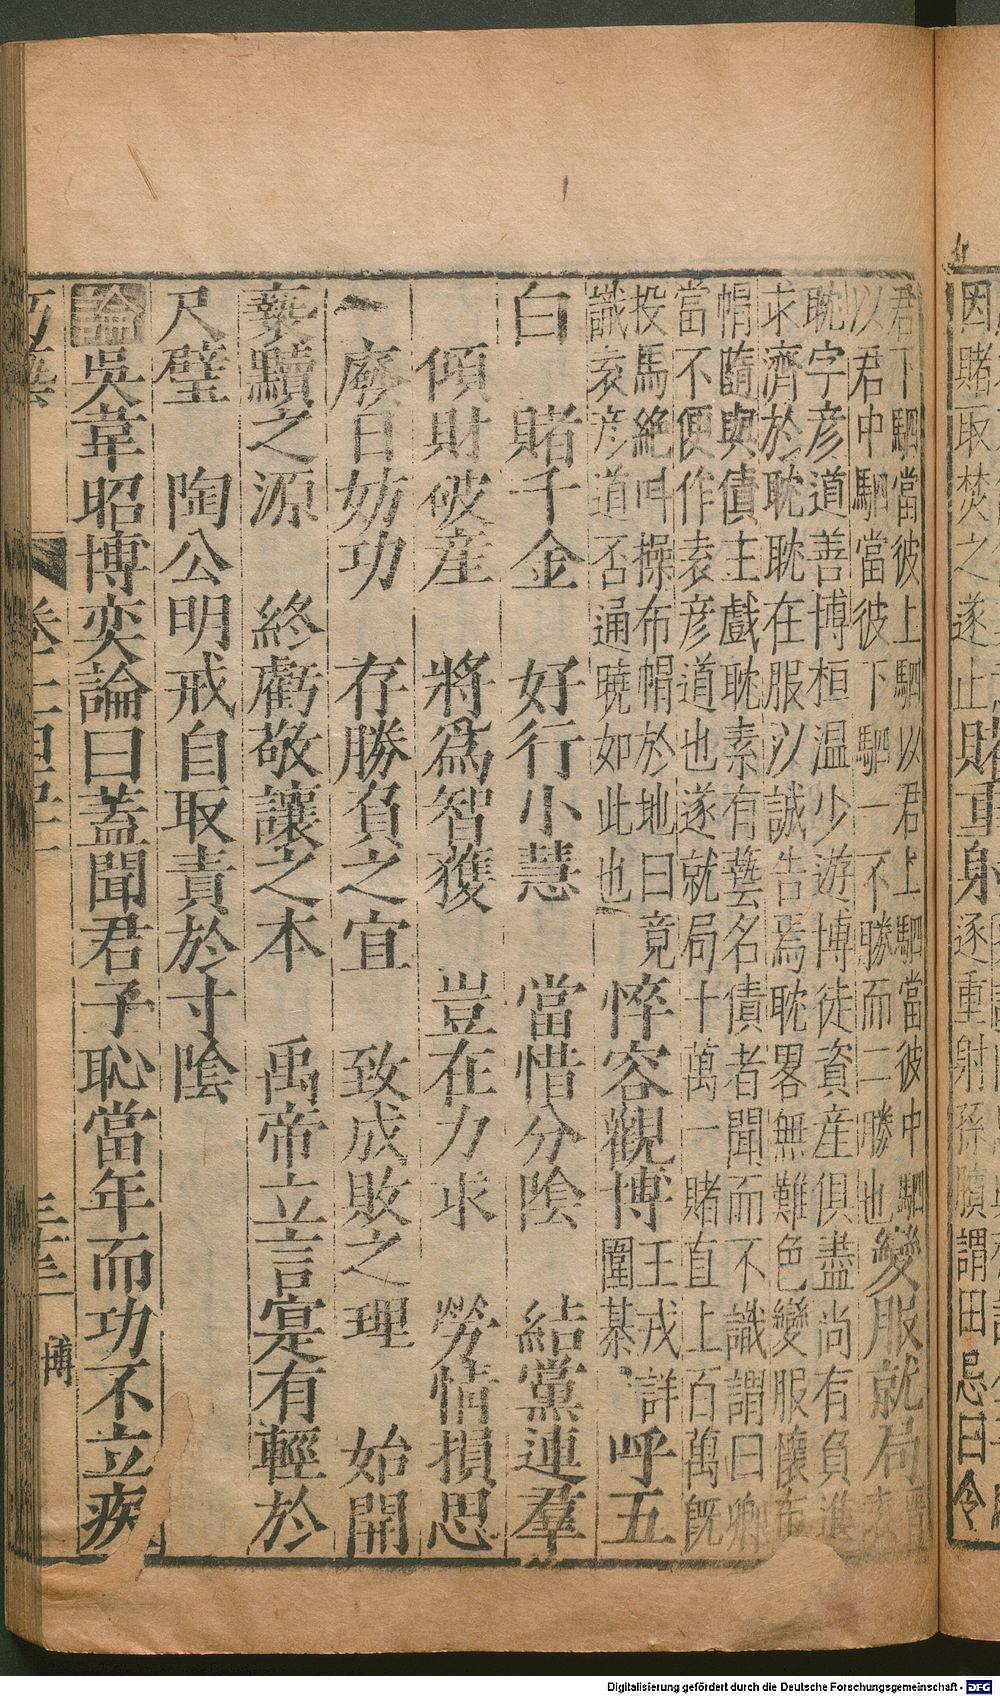 因賭取焚之遂止賭重射逐重射孫臏謂田忌曰今
君下駟當彼上駟以君上駟當彼中駟
以君中駟當彼下駟一不勝而二勝也
變服就局
耽字彥道善博桓温少遊博徒資産俱盡尚有負進
求濟於耽耽在服以誠告焉耽畧無難色變服懷布
帽隨與債主戲耽素有藝名債者聞而不識謂曰卿
當不便作袁彥道也遂就局十萬一賭直上百萬既
投馬絶呌操布帽於地曰竟
識袁彥道否通曉如此也
悴容觀博
王戎詳
圍棊
呼五
白 賭千金 好行小慧 當惜分陰 結黨連羣
傾財破産 將爲智獲 豈在力求 勞情損思
一廢日妨功 存勝負之宜 致成敗之理 始開
䙝黷之源 終虧敬讓之本 禹帝立言寔有輕於
尺璧 陶公明戒自取責於寸陰
論吳韋昭博奕論曰蓋聞君子恥當年而功不立疾
博
Digitalisierung gefördert durch die Deutsche Forschungsgemeinschaft - DFG